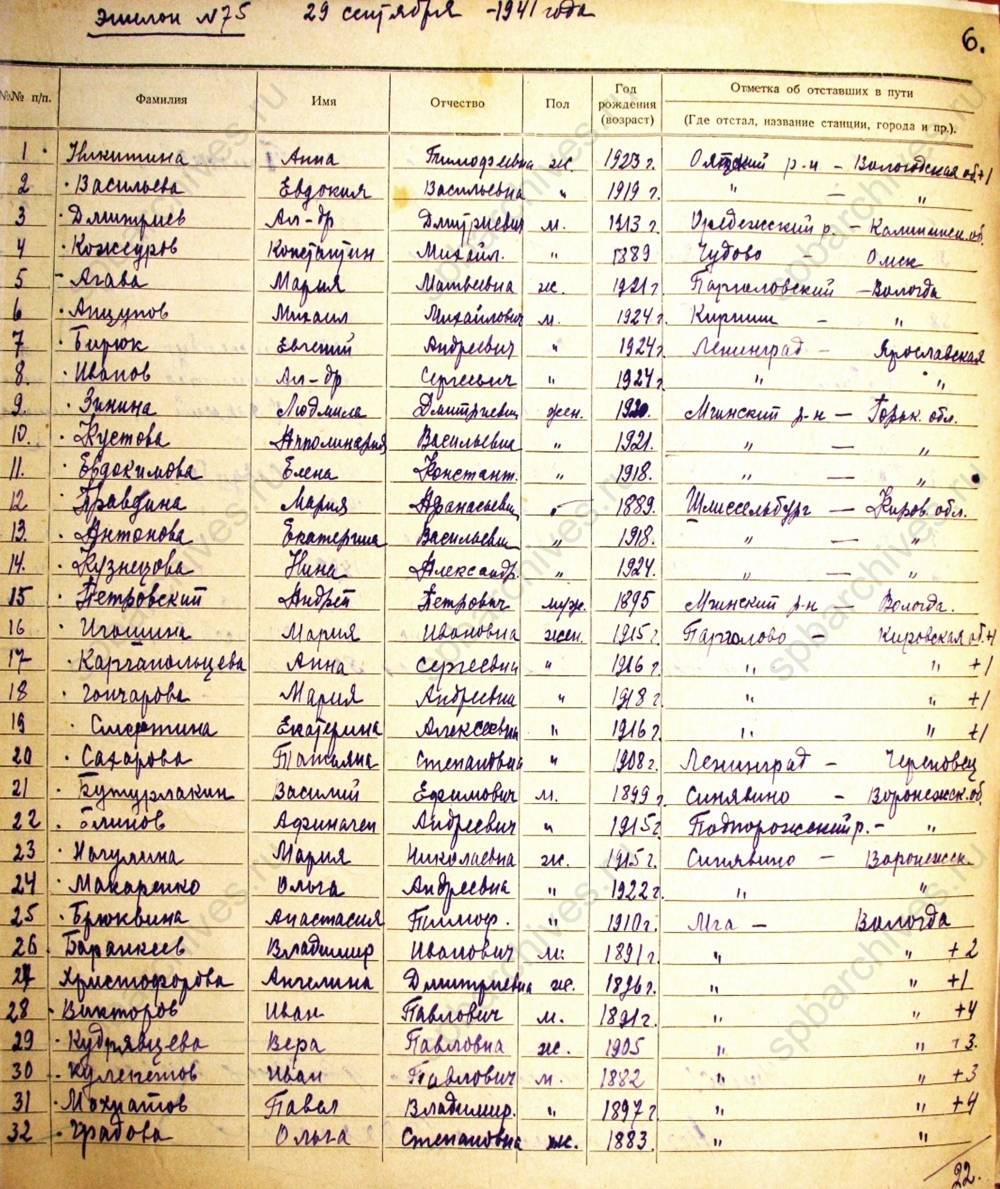 Эшелон №75 29 сентября -1941 года
6.
№№ п/п. Фамилия Имя Отчество Пол Год рождения (возраст) Отметка об отставших в пути
(Где отстал, название станции, города и пр.).
1 Никитина Анна Тимофеевна ж. 1923 г. Оятский р-н - Вологодская об. +1
2 Васильева Евдокия Васильевна " 1919 г. " — "
3 Дмитриев Ал-др Дмитриевич м. 1913 г. Оредежский р. - Калининск. об.
4 Кожеуров Константин Михайл. " 1889 Чудово - Омск
5 Агава Мария Матвеевна ж. 1921 г Парголовский - Вологда
6 Анцупов Михаил Михайлович м. 1924 г. Кириши - "
7 Бирюк Евгений Андреевич " 1924 г. Ленинград - Ярославская
8. Иванов Ал-др Сергеевич " 1924 г. " "
9. Зинина Людмила Дмитриевн жен. 1920. Мгинский р-н — Горьк. обл.
10. Кустова Апполинария Васильевна " 1921. " — "
11. Евдокимова Елена Констант. " 1918. " — "
12 Правдина Мария Афанасьевн " 1889. Шлиссельбург — Киров. обл.
13. Антонова Екатерина Васильевн " 1918. " — "
14. Кузнецова Нина Александр. " 1924. " — "
15 Петровский Андрей Петрович муж. 1895 Мгинский р-н — Вологда.
16 Игошина Мария Ивановна жен. 1915 г Парголово - Кировская об. +1
17 Каргапольцева Анна Сергеевна " 1916 г. " " +1
18 Гончарова Мария Андреевна " 1918 г. " " +1
19 Сметтина Екатерина Алексеевна " 1916 г. " " +1
20 Сахарова Татьяна Степановна " 1908 г. Ленинград - Череповец
21 Бутурлакин Василий Ефимович м. 1899 г. Синявино - Воронежск. об.
22. Блинов Афиноген Андреевич " 1915 г Подпорожский р. - "
23 Мария Николаевна ж. 1915 г. Синявино - Воронежск.
24 Макаренко Ольга Андреевна " 1922 г. " "
25 Брюквина Анастасия Тимоф. " 1910 г. Мга — Вологда
26 Владимир Иванович м. 1891 г. " " +2
27 Христофорова Ангелина Дмитриевна ж. 1896 г. " " +1
28 Викторов Иван Павлович м. 1891 г. " " +4
29 Кудрявцева Вера Павловна ж. 1905 " " +3.
30 Кулепетов Иван Павлович м. 1882 " " +3
31 Мохратов Павел Владимир. " 1897 г " " +4
32 Градова Ольга Степановна ж. 1883. " "
22.
spbarchives.ru